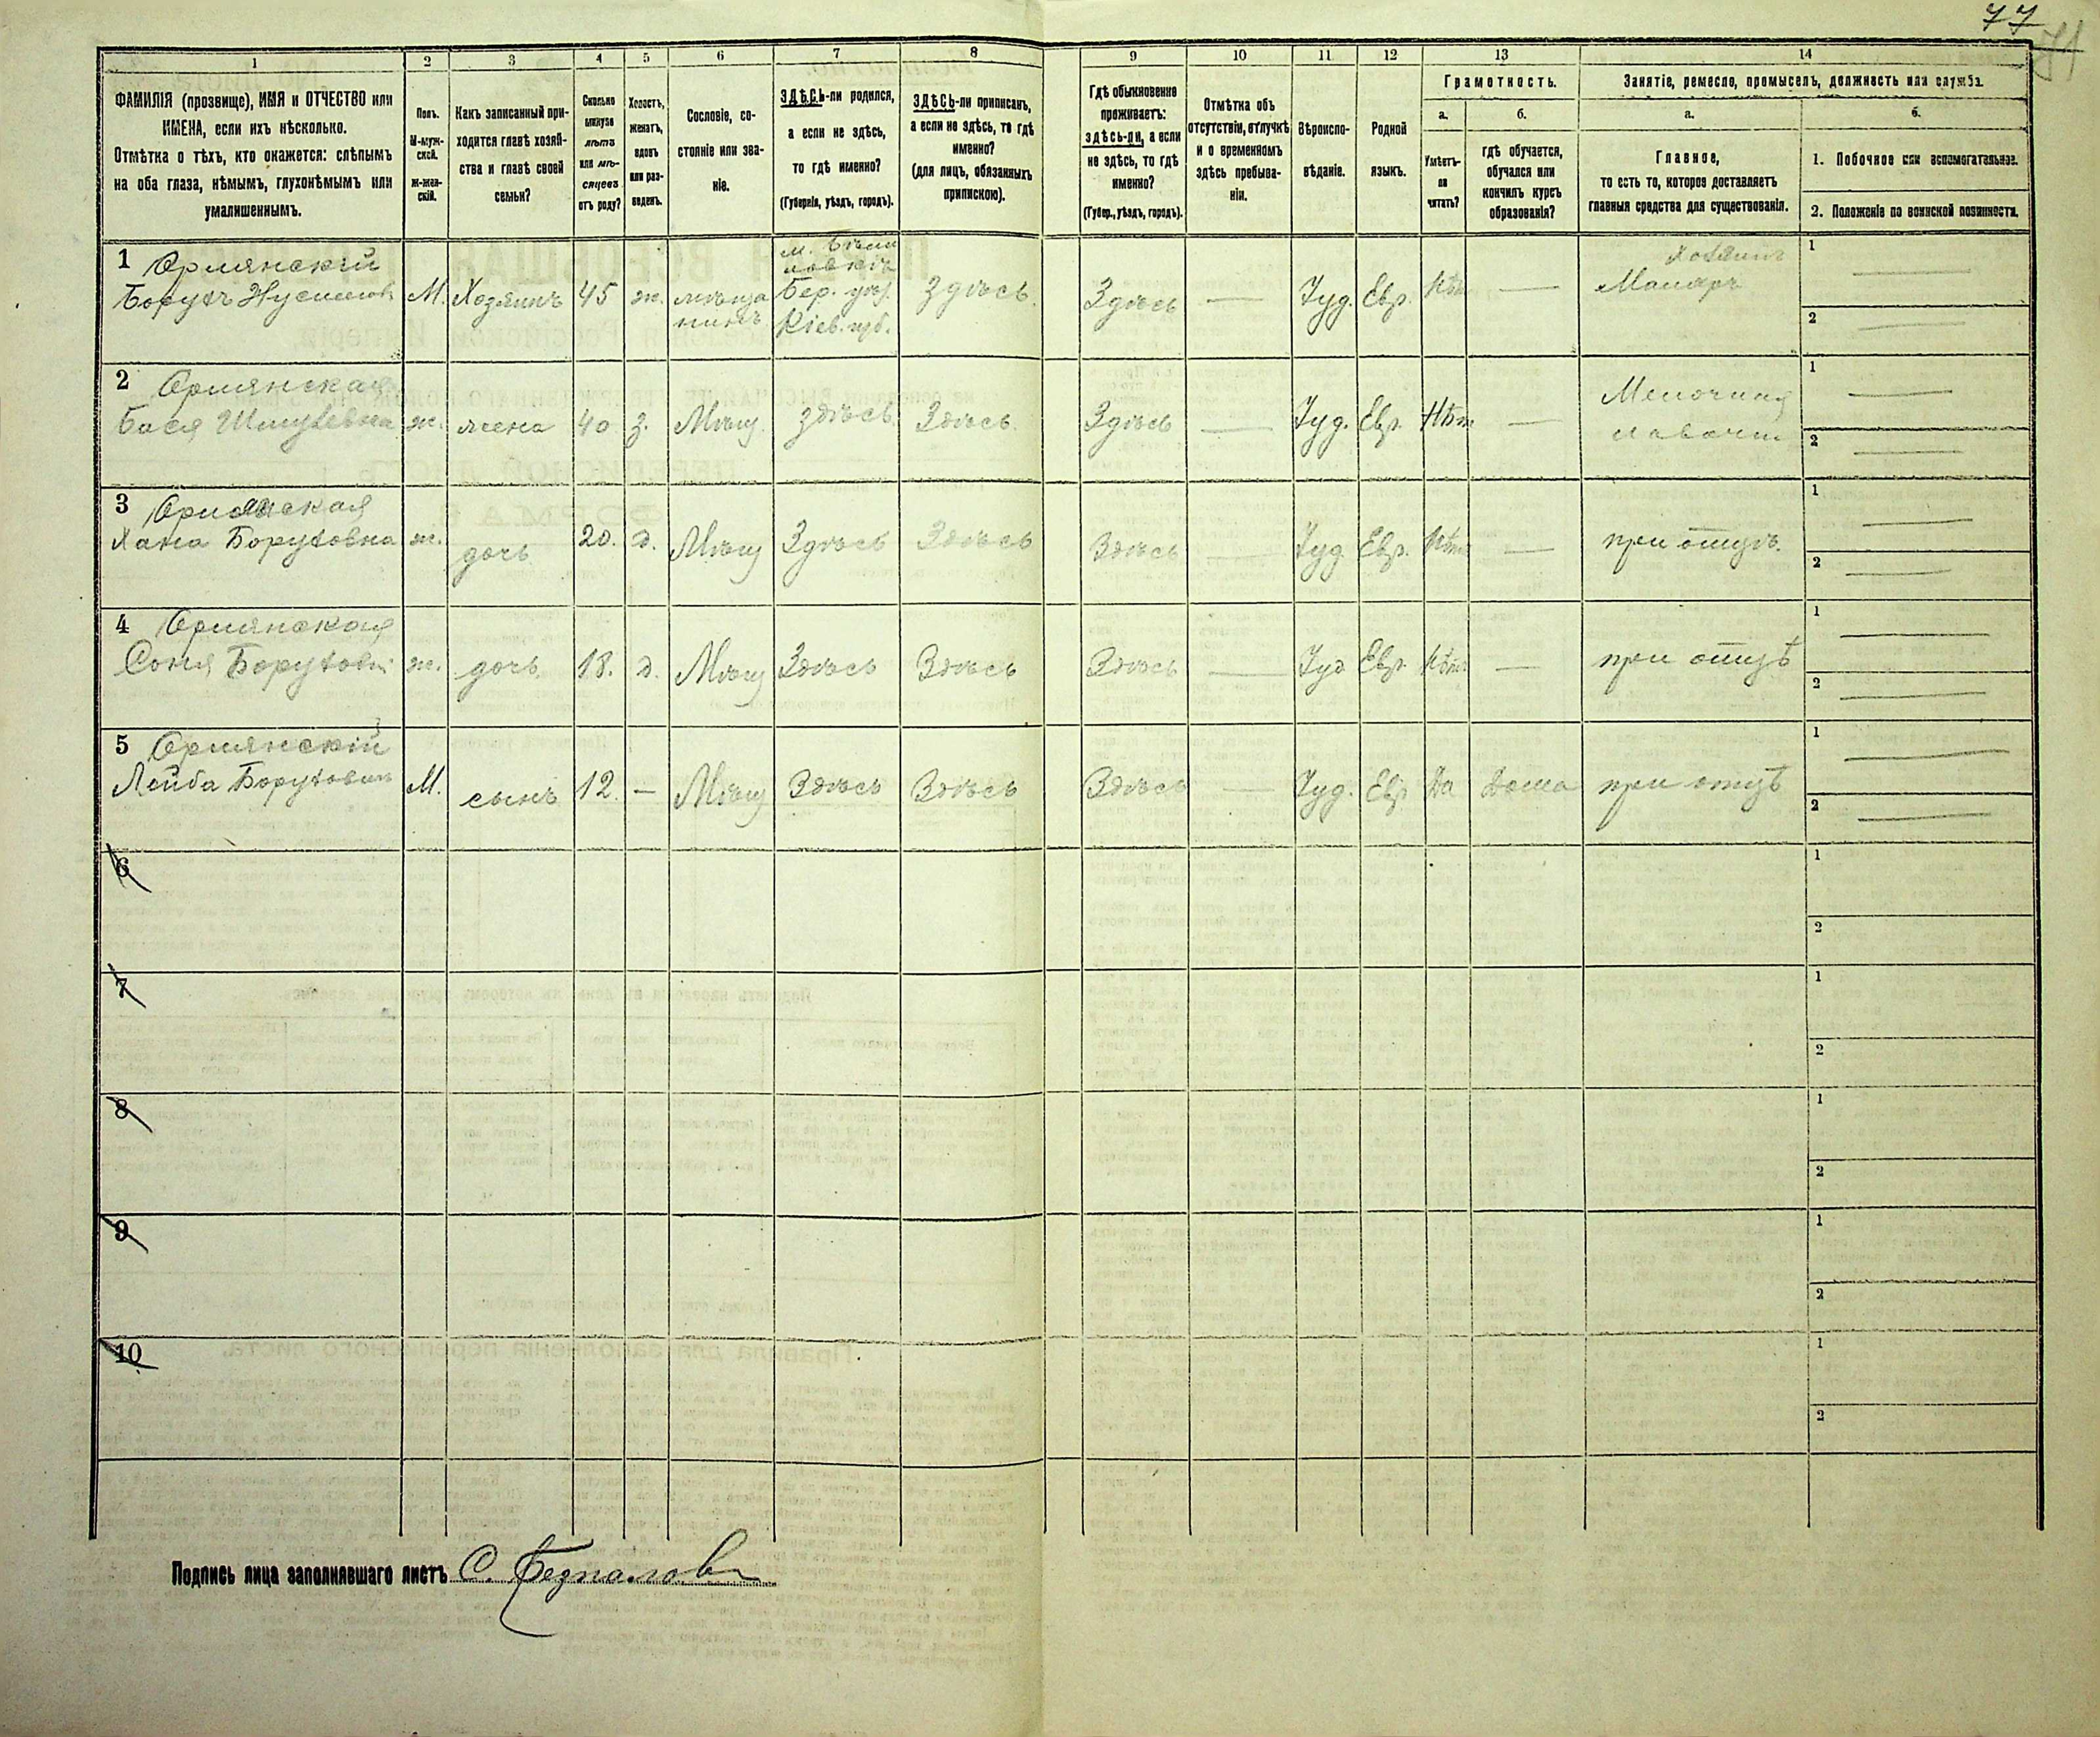 77
1 2 3 4 5 6 7 8 9 10 11 12 13 14
ФАМИЛІЯ (прозвище), ИМЯ и ОТЧЕСТВО или
ИМЕНА, если ихъ нѣсколько.
Отмѣтка о тѣхъ, кто окажется: слѣпымъ
на оба глаза, нѣмымъ, глухонѣмымъ или
умалишеннымъ.
Полъ.
М-муж-
ской.
ж-жен-
скій.
Какъ записанный при-
ходится главѣ хозяй-
ства и главѣ своей
семьи?
Сколько
минуло
лѣтъ
или мѣ-
сяцевъ
отъ роду?
Холостъ,
женатъ,
вдовъ
или раз-
веденъ.
Сословіе, со-
стояніе или зва-
ніе.
ЗДѢСЬ-ли родился,
а если не здѣсь,
то гдѣ именно?
(Губернія, уѣздъ, городъ).
ЗДѢСЬ-ли приписанъ,
а если не здѣсь, то гдѣ
именно?
(для лицъ, обязанныхъ
припискою).
Гдѣ обыкновенно
проживаетъ:
здѣсь-ли, а если
не здѣсь, то гдѣ
именно?
(Губер., уѣздъ, городъ).
Отмѣтка объ
отсутствіи, отлучкѣ
и о временномъ
здѣсь пребыва-
ніи.
Вѣроиспо-
вѣданіе.
Родной
языкъ.
Грамотность.
а.
Умѣетъ-
ли
читать?
б.
гдѣ обучается,
обучался или
кончилъ курсъ
образованія?
Занятіе, ремесло, промыселъ, должность или служба.
а.
Главное,
то есть то, которое доставляетъ
главныя средства для существованія.
б.
1. Побочное или вспомогательное.
2. Положеніе по воинской повинности.
1 Орлянскій
Борухъ
М. Хозяинъ 45 ж. мѣща
нинъ
Бер. уѣз.
Кіев. губ.
Здѣсь. Здѣсь — Іуд. Евр. Нѣт —
Хозяинъ
Маляръ
1 —
2 —
2 Орлянская
Бася
ж. жена 40 з. Мѣщ. здѣсь. Здѣсь. Здѣсь — Іуд. Евр. Нѣт —
Мелочная
лавочн
1 —
2 —
3
Хана Боруховна ж. дочь 20. д. Мѣщ Здѣсь Здѣсь Здѣсь — Іуд Евр. Нѣт —
при отцѣ.
1 —
2 —
4 Орлянская
Соня Борухов ж. дочь 18. д. Мѣщ Здѣсь Здѣсь Здѣсь — Іуд Евр. Нѣт —
при отцѣ
1 —
2 —
5 Орлянскій
Лейба Борухович М. сынъ 12. — Мѣщ Здѣсь Здѣсь Здѣсь — Іуд. Евр. Да Дома
при отцѣ
1 —
2 —
6
1
2
7
1
2
8
1
2
9
1
2
10
1
2
Подпись лица заполнявшаго листъ С.